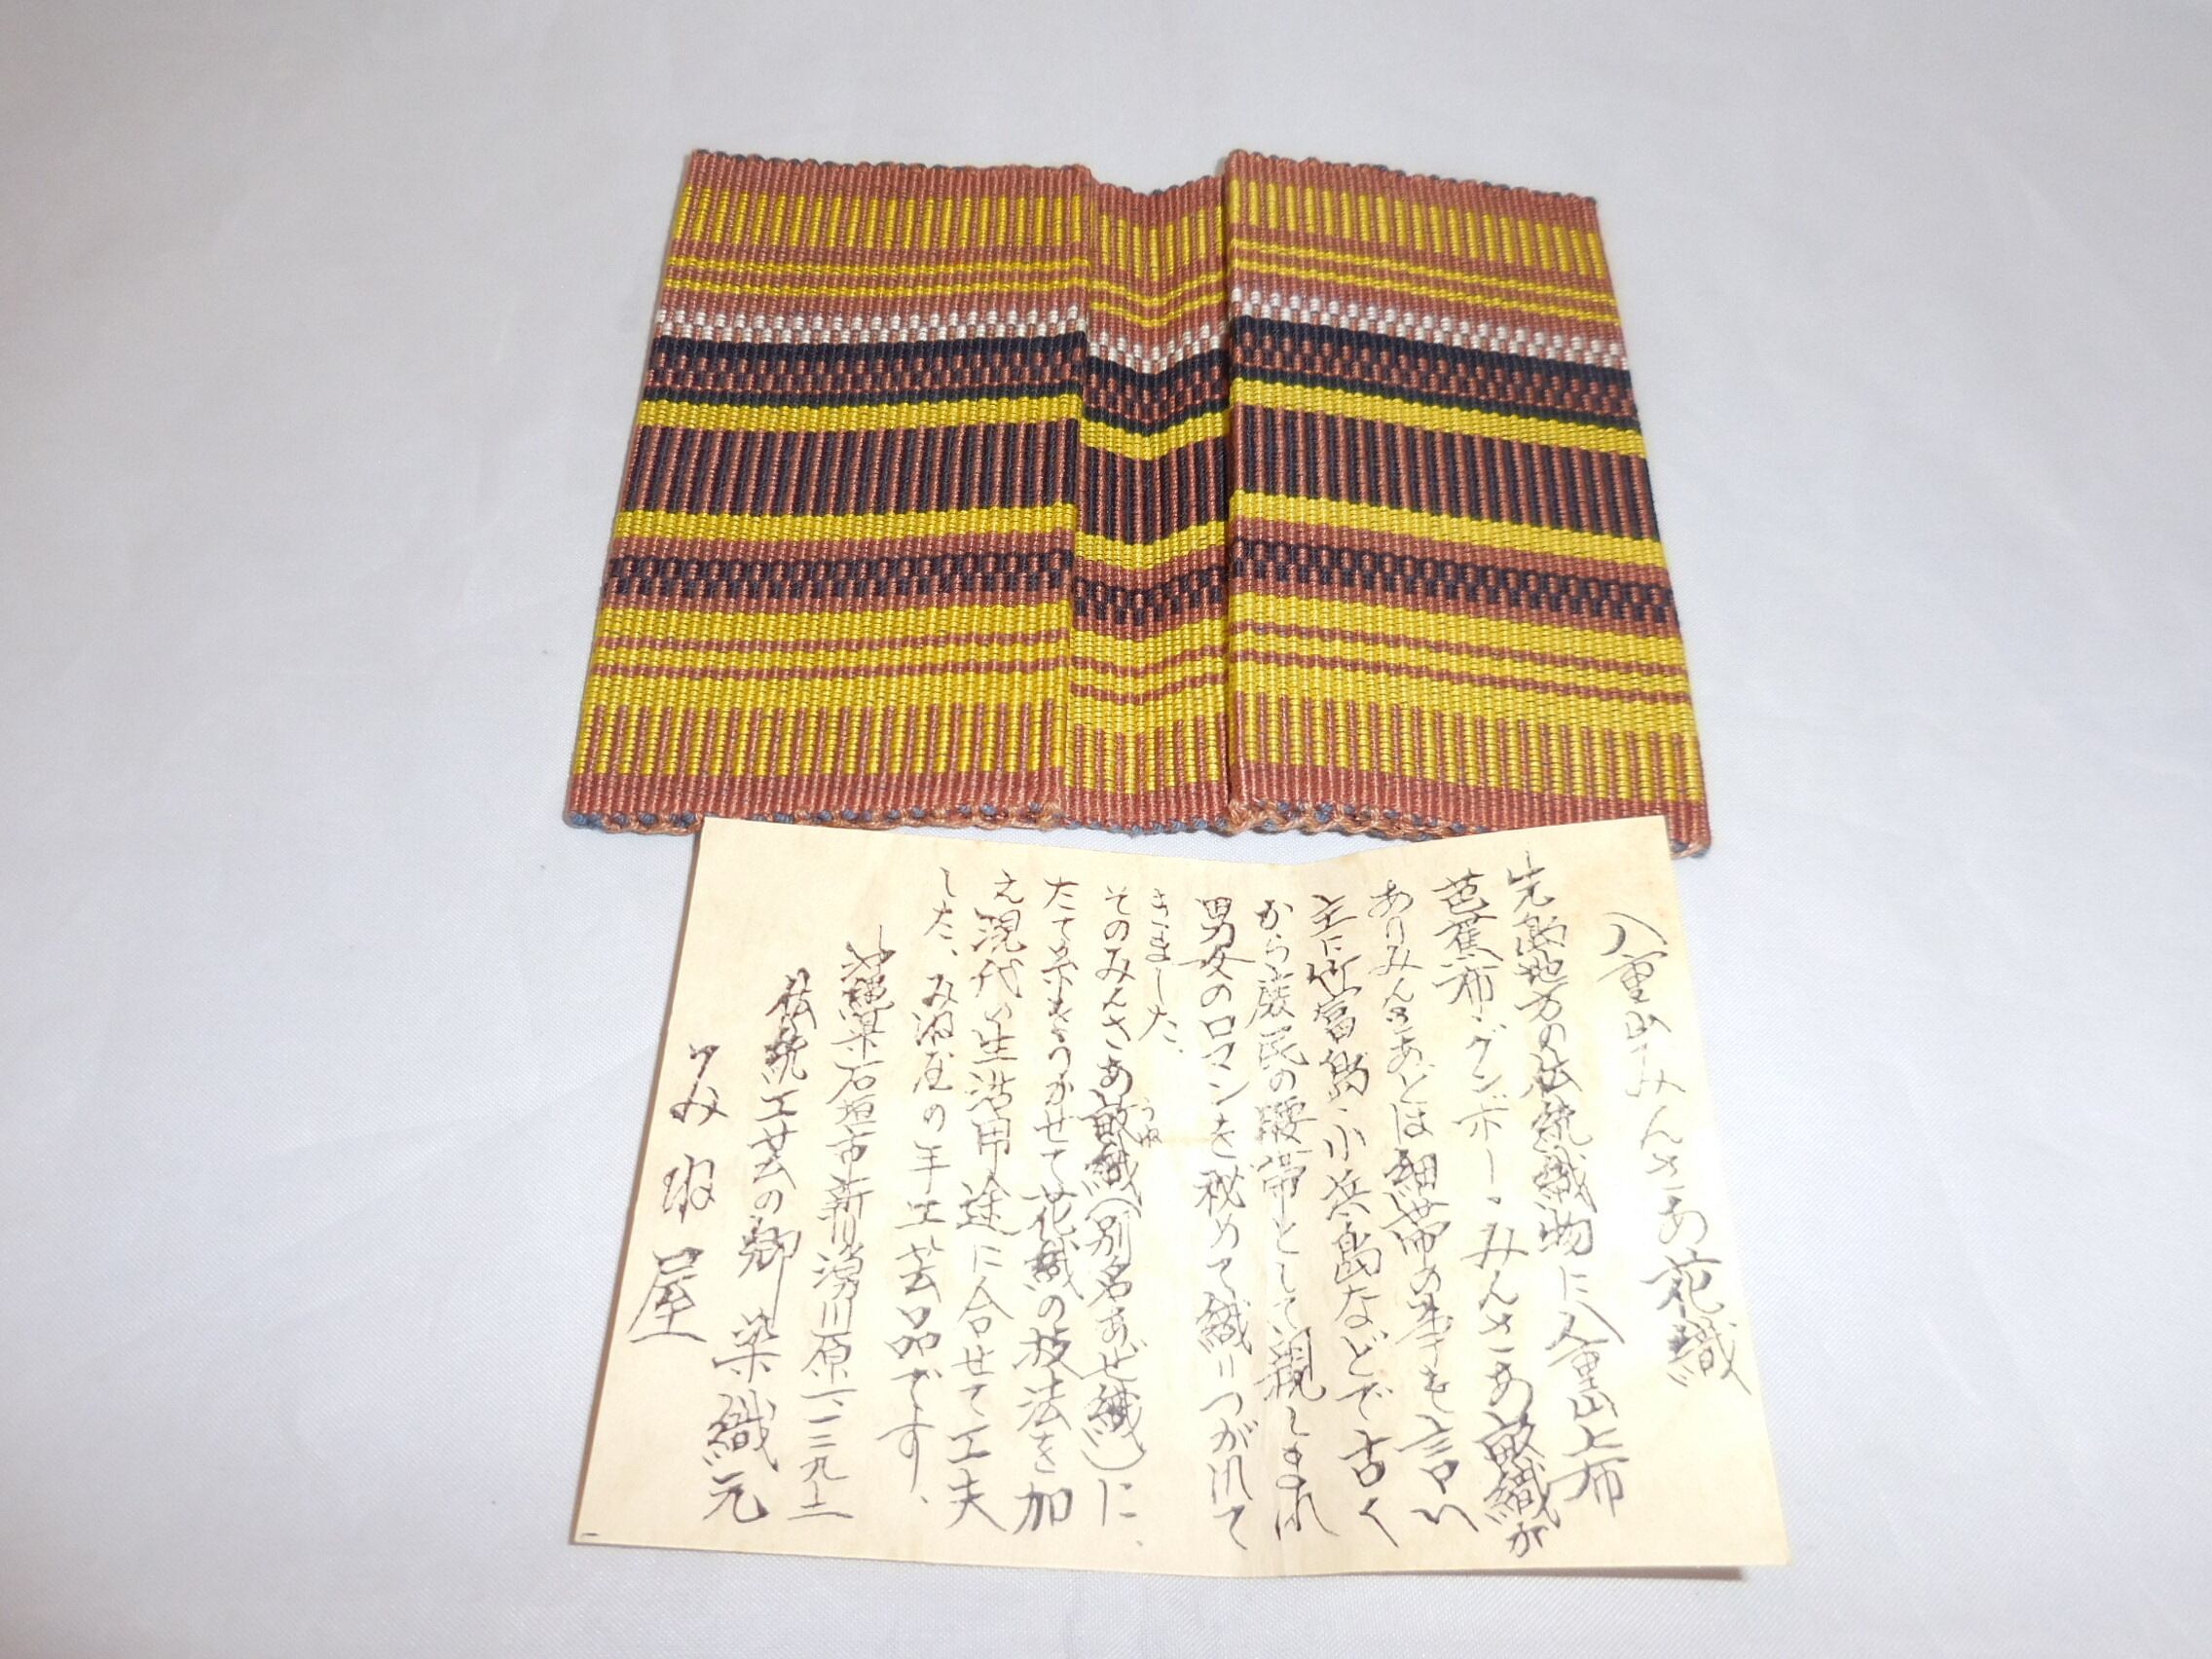 八重山みんさあ花織
先島地方の伝統織物に八重山上布
芭蕉布・グンボー・みんさあ畝織が
ありみんさあとは細帯の事を言い
主に竹富島・小浜島などで古く
から庶民の腰帯として親しまれ
男女のロマンを秘めて織りつがれて
きました、
そのみんさあ畝織(別名あぜ織)に、
うね
たて糸をうかせて花織の技法を加
え現代の生活用途に合せて工夫
した、みね屋の手工芸品です、
沖縄県石垣市新川湧川原一、一二九ノ二
伝統工芸の郷 染織元
みね屋